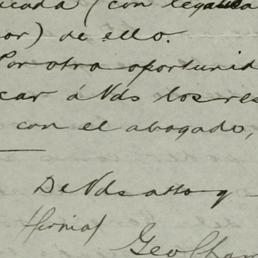 icada (con legaliza
or) de ello.
Por otra oportunid
car á Vds los res
con el abogado,
De Vds atto y
(firma)
Geo